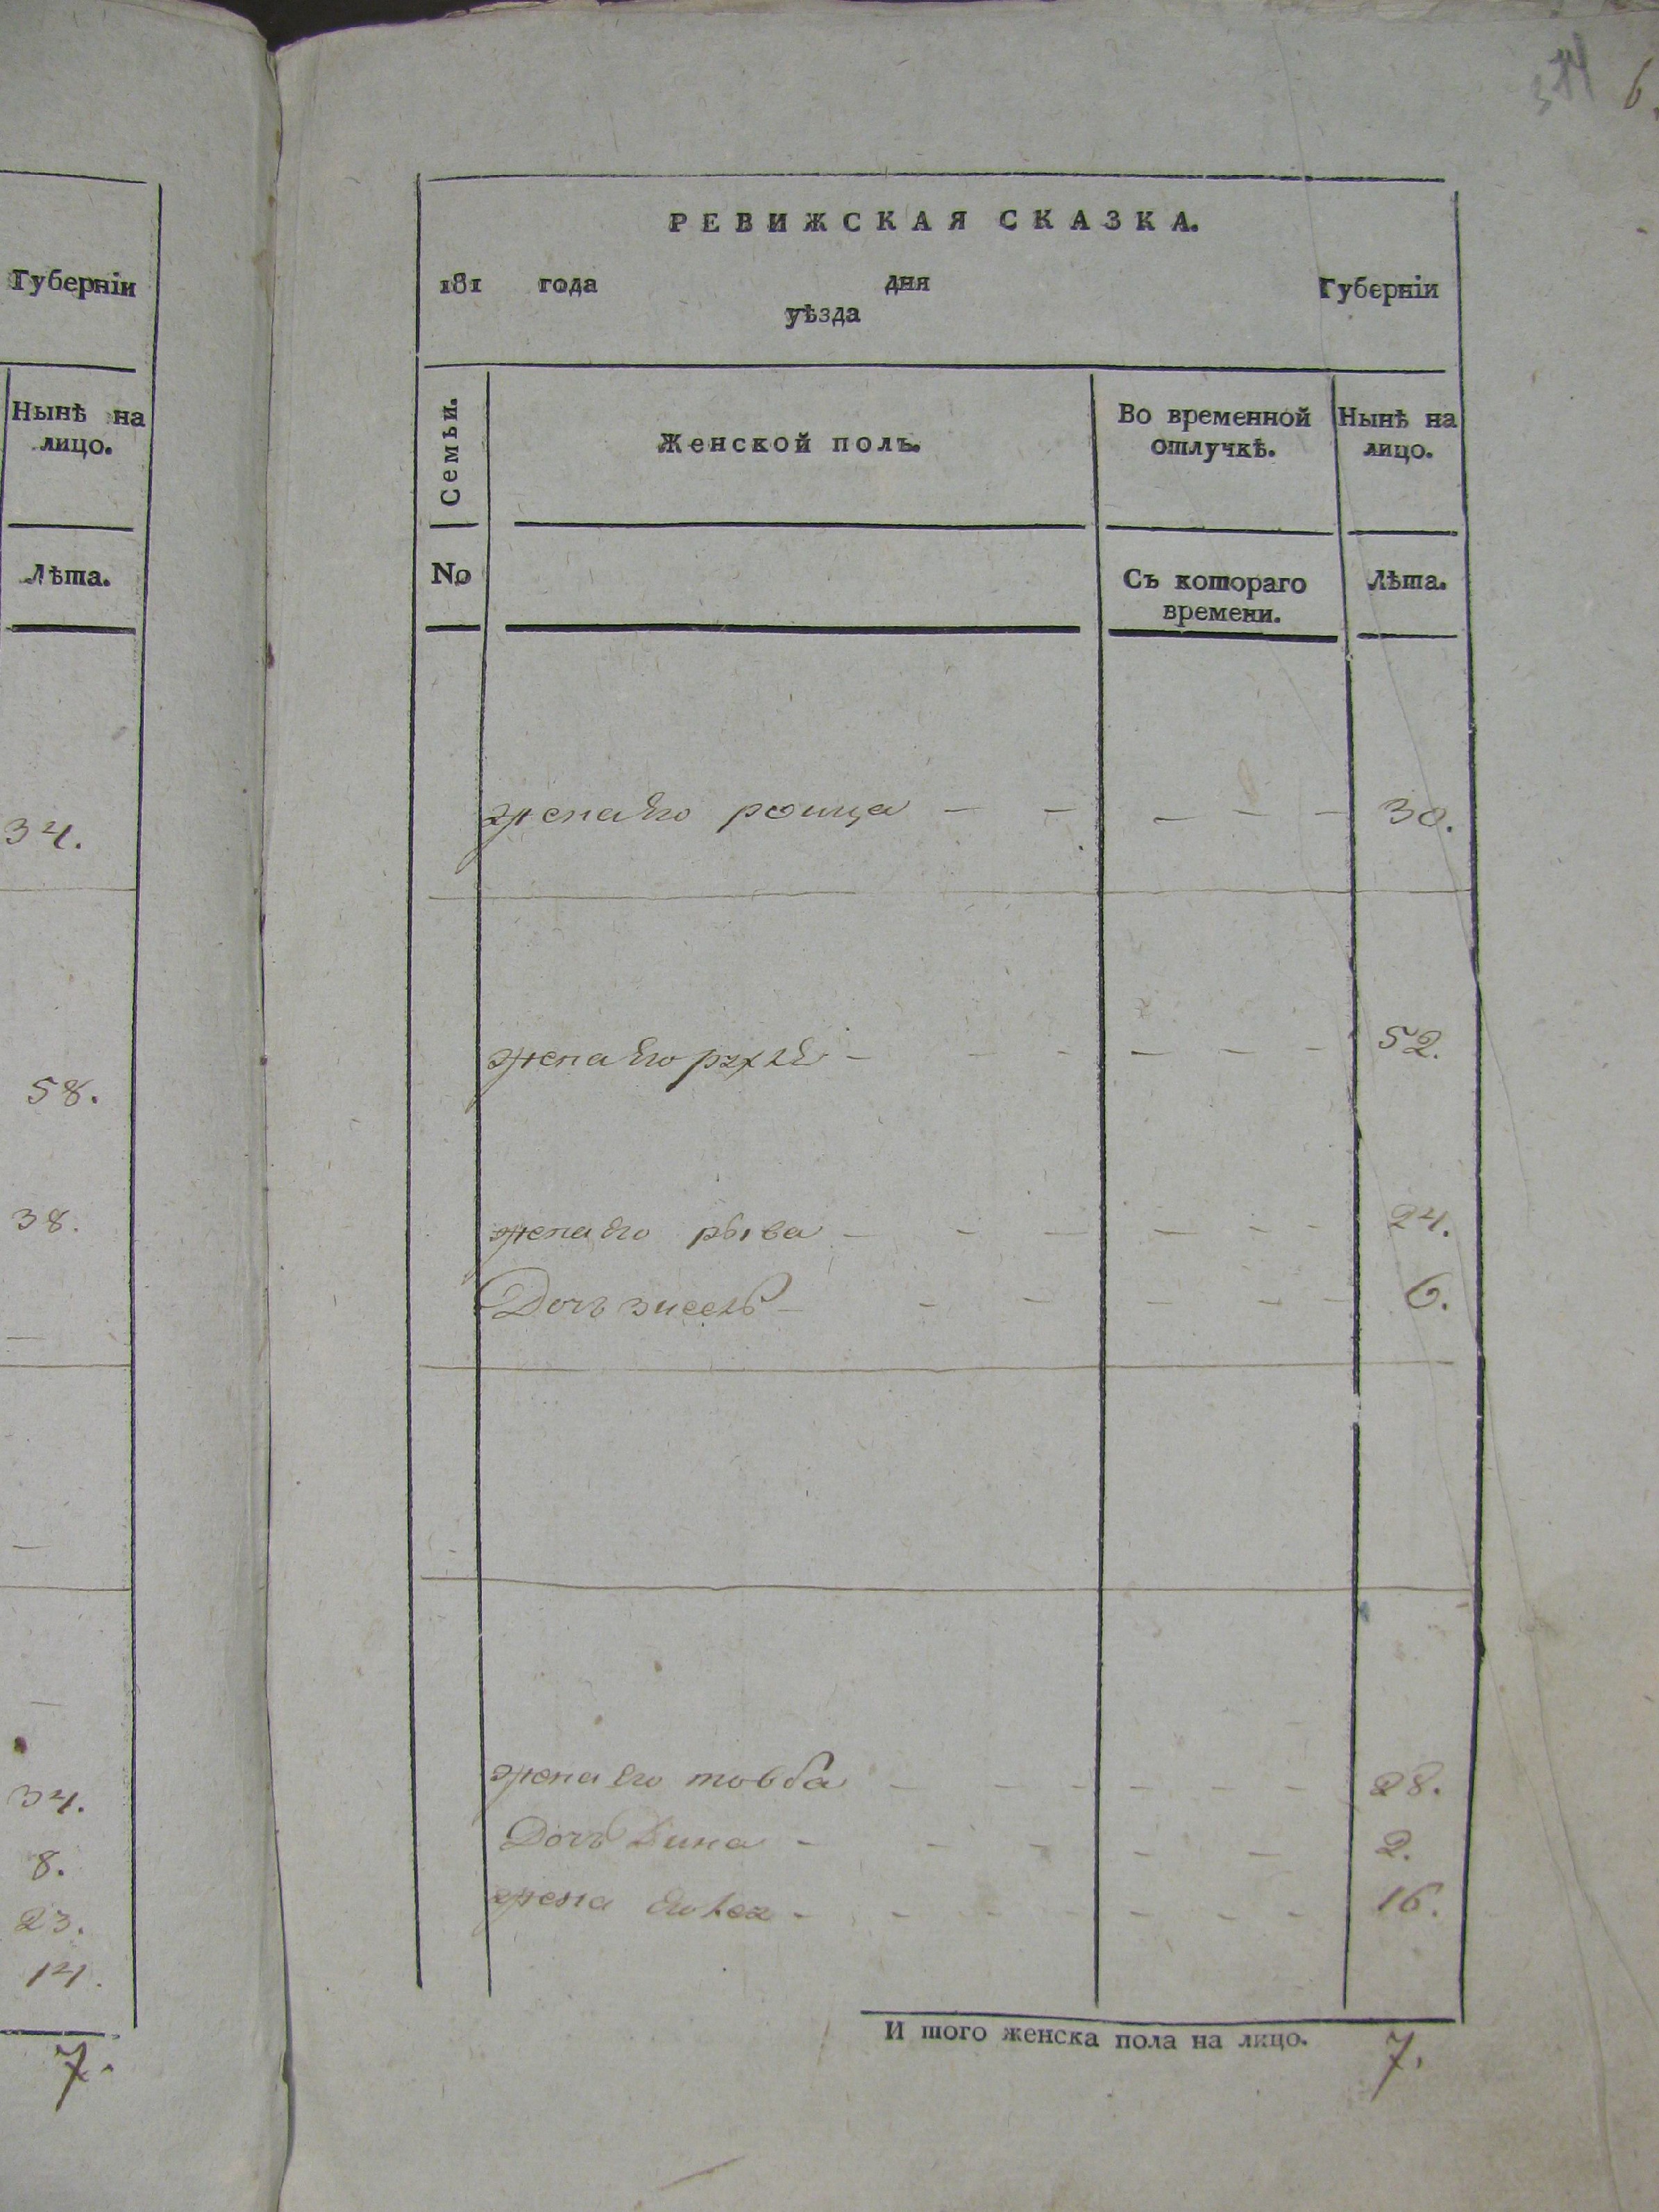 Губерніи
Нынѣ на
лицо.
Лѣта.
34.
58.
38.
34.
8.
23.
14.
7.
6.
РЕВИЖСКАЯ СКАЗКА.
181 года дня Губерніи
уѣзда
Семьи.
Женской полъ.
Во временной
отлучкѣ.
Нынѣ на
лицо.
No
Съ котораго
времени.
Лѣта.
жена Его роица — — — — — 30.
жена Его рухле — — — — — 52.
жена Его рыва — — — — — — 24.
Дочь зисель — — — — — — 6.
жена Его товба — — — — — 28.
Дочь Дина — — — — — 2.
жена Его — — — — — — 16.
И того женска пола на лицо. 7.